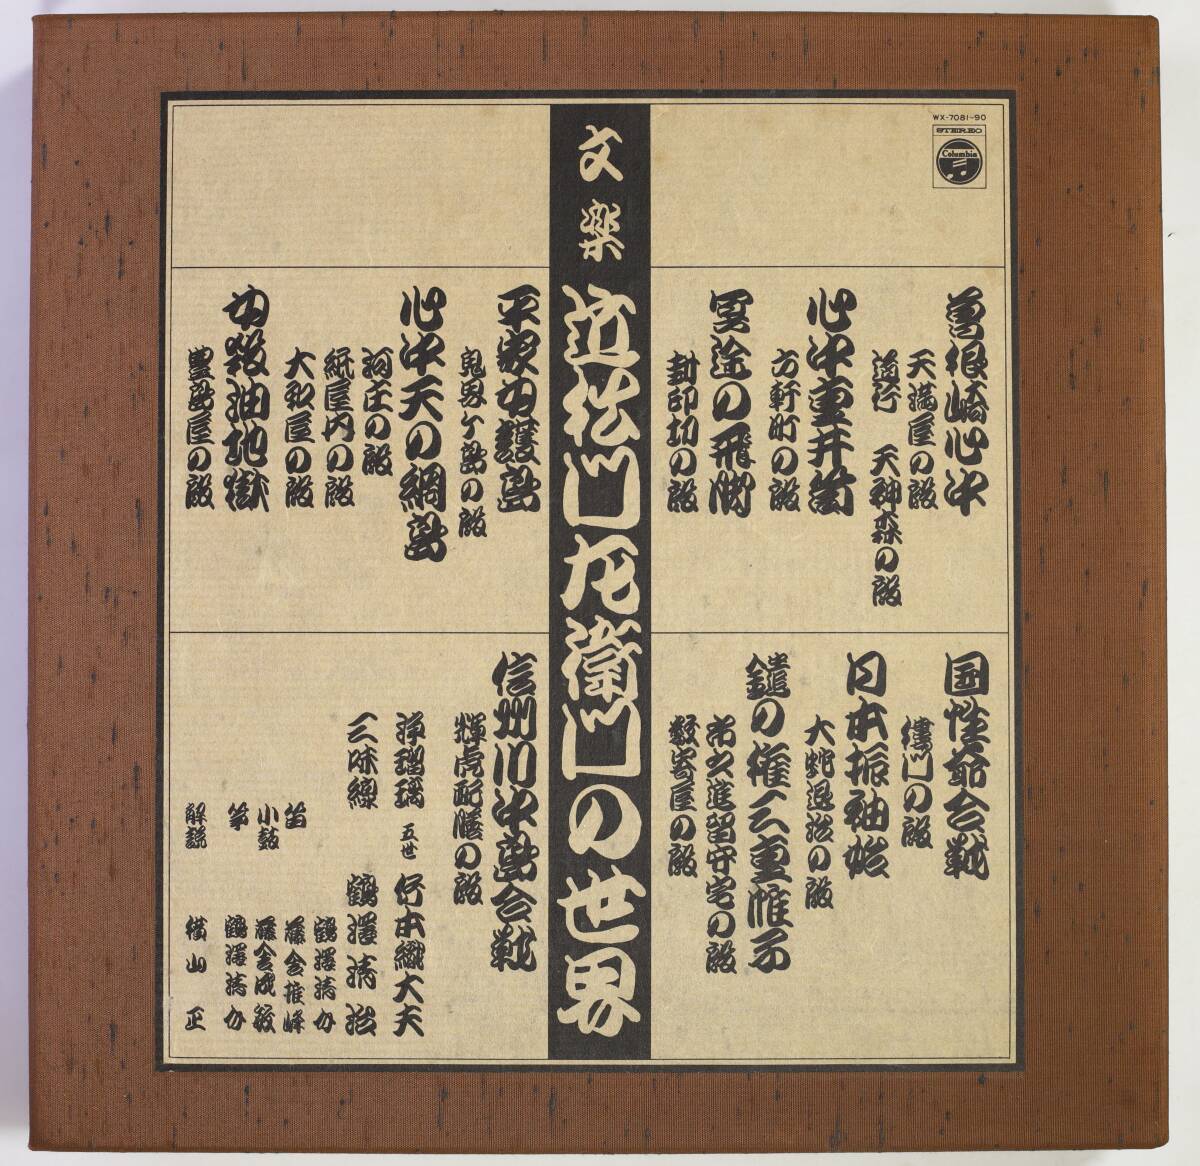 WX-7081-90
STEREO
Columbia
文楽 近松門左衛門の世界
曽根崎心中
天満屋の段
道行 天神森の段
心中重井筒
六軒町の段
冥途の飛脚
封印切の段
平家女護島
鬼界ヶ島の段
心中天の網島
河庄の段
紙屋内の段
大和屋の段
女殺油地獄
豊島屋の段
国性爺合戦
楼門の段
日本振袖始
大蛇退治の段
鑓の権三重帷子
市之進留守宅の段
数寄屋の段
信州川中島合戦
輝虎配膳の段
浄瑠璃 五世 竹本織大夫
三味線 鶴澤清治
鶴澤清介
笛 藤舎推峰
小鼓 藤舎成敏
箏 鶴澤清介
解説 横山正